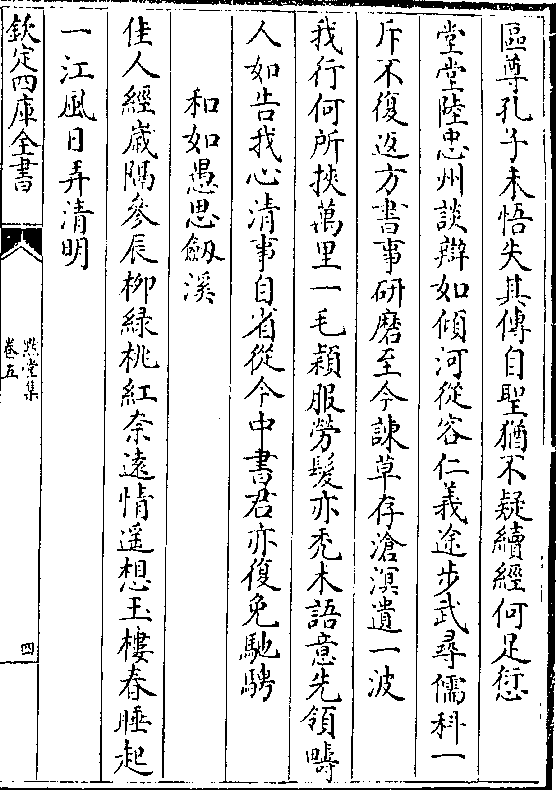 區尊孔子未悟失其傳自聖猶不疑續經何足愆
堂堂陸忠州談辯如傾河從容仁義途步武尋儒科一
斥不復返方書事研磨至今諫草存滄溟遺一波
我行何所挾萬里一毛穎服勞髮亦禿木語意先領疇
人如告我心清事自省從今中書君亦復免馳騁
和如愚思劔溪
佳人經歲隔參辰柳綠桃紅奈遠情遥想玉樓春睡起
一江風日弄清明
欽定四庫全書
㸃堂集
卷五
四